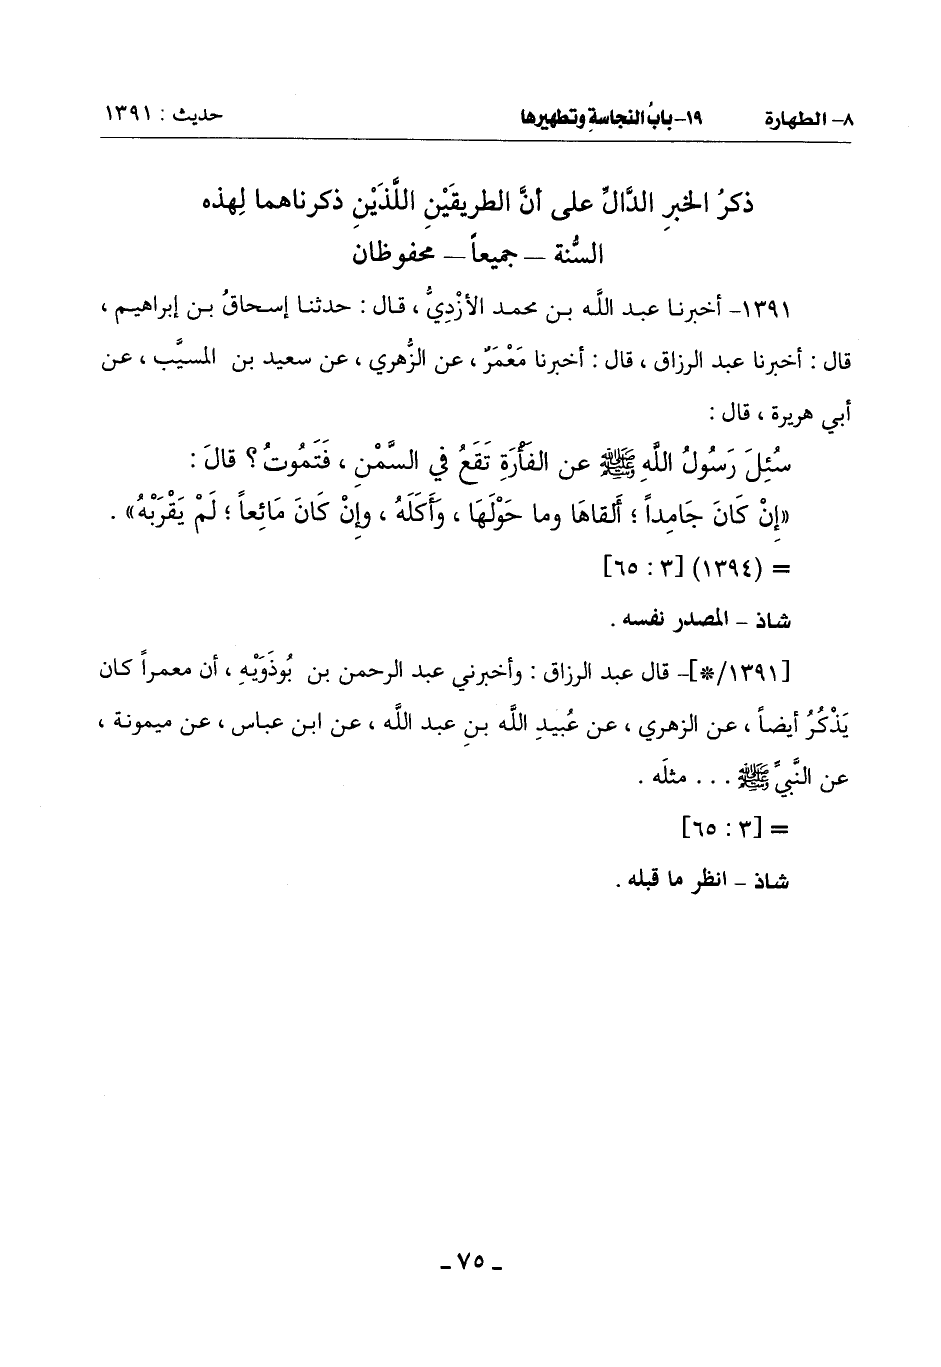 ٨- الطهارة ١٩-بابُ النجاسةِ وتطهيرها حديث : ١٣٩١
ذكرُ الخبرِ الدَّالِّ على أنَّ الطريقَيْنِ اللَّذَيْنِ ذكرناهما لِهذه
السُّنة – جميعاً – محفوظان
١٣٩١- أخبرنا عبد اللَّه بن محمد الأزْدِيُّ ، قال : حدثنا إسحاقُ بن إبراهيم ،
قال : أخبرنا عبد الرزاق ، قال : أخبرنا مَعْمَرٌ ، عن الزُّهري ، عن سعيد بن المسيَّب ، عن
أبي هريرة ، قال :
سُئِلَ رَسُولُ اللَّهِ ﷺ عن الفَأْرَةِ تَقَعُ في السَّمْنِ ، فَتَمُوتُ ؟ قالَ :
«إِنْ كَانَ جَامِداً ؛ أَلقاهَا وما حَوْلَهَا ، وَأَكَلَهُ ، وإِنْ كَانَ مَائِعاً ؛ لَمْ يَقْرَبْهُ» .
= (١٣٩٤) [٣ : ٦٥]
شاذ – المصدر نفسه .
[١٣٩١/*]– قال عبد الرزاق : وأخبرني عبد الرحمن بن بُوذَوَيْهِ ، أن معمراً كان
يَذْكُرُ أيضاً ، عن الزهري ، عن عُبيدِ اللَّه بنِ عبد اللَّه ، عن ابن عباس ، عن ميمونة ،
عن النَّبيِّ ﷺ . . . مثلَه .
= [٣ : ٦٥]
شاذ – انظر ما قبله .
– ٧٥ –